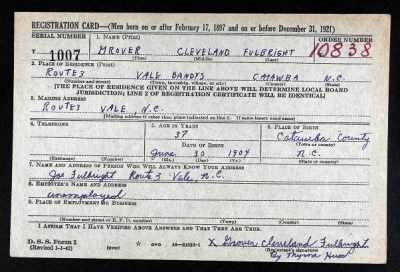 REGISTRATION CARD—(Men born on or after February 17, 1897 and on or before December 31, 1921)
SERIAL NUMBER 1. NAME (Print) ORDER NUMBER
T 1007 GROVER CLEVELAND FULBRIGHT 10838
(First) (Middle) (Last)
2. PLACE OF RESIDENCE (Print)
ROUTE 3 VALE BANDYS CATAWBA N.C.
(Number and street) (Town, township, village, or city) (County) (State)
[THE PLACE OF RESIDENCE GIVEN ON THE LINE ABOVE WILL DETERMINE LOCAL BOARD
JURISDICTION; LINE 2 OF REGISTRATION CERTIFICATE WILL BE IDENTICAL]
3. MAILING ADDRESS
ROUTE 3 VALE, N.C.
[Mailing address if other than place indicated on line 2. If same insert word same]
4. TELEPHONE 5. AGE IN YEARS 6. PLACE OF BIRTH
37 Catawba County
DATE OF BIRTH (Town or county)
June 30 1904 N.C.
(Exchange) (Number) (Mo.) (Day) (Yr.) (State or country)
7. NAME AND ADDRESS OF PERSON WHO WILL ALWAYS KNOW YOUR ADDRESS
Joe Fulbright Route 3 Vale, N.C.
8. EMPLOYER'S NAME AND ADDRESS
unemployed
9. PLACE OF EMPLOYMENT OR BUSINESS
(Number and street or R. F. D. number) (Town) (County) (State)
I AFFIRM THAT I HAVE VERIFIED ABOVE ANSWERS AND THAT THEY ARE TRUE.
D. S. S. Form 1
(Revised 1-1-42) GPO 16—21630-1 X Grover Cleveland Fulbright
(Registrant's signature)
By Myrna Huss